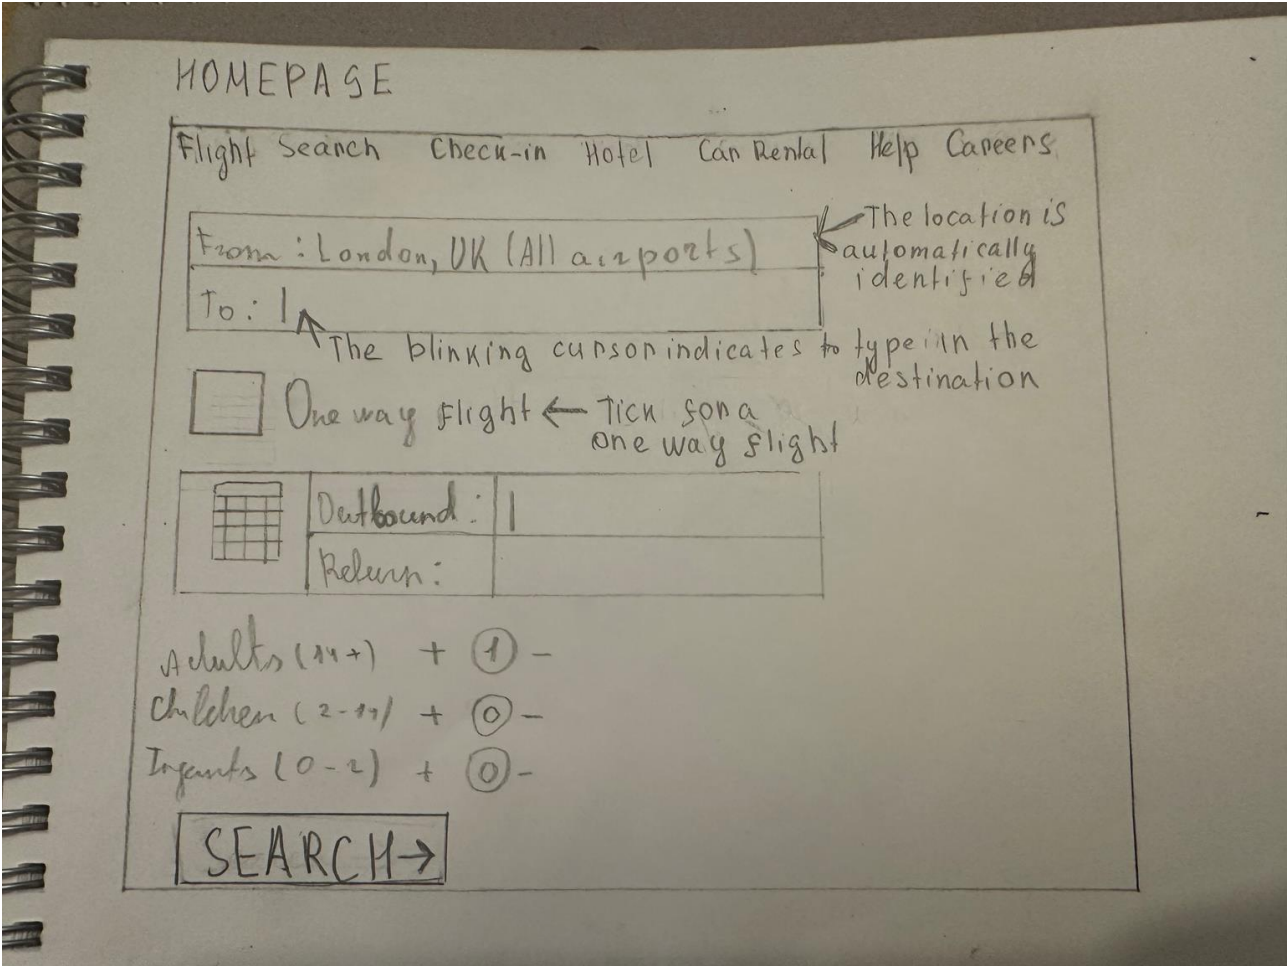 HOMEPAGE
Flight Search Check-in Hotel Car Rental Help Careers
From: London, UK (All airports)
The location is
automatically
identified
To: |
The blinking cursor indicates to type in the
destination
One way flight ← Tick for a
one way flight
Outbound: |
Return:
Adults (14+) + 1 -
Children (2-14) + 0 -
Infants (0-2) + 0 -
SEARCH→